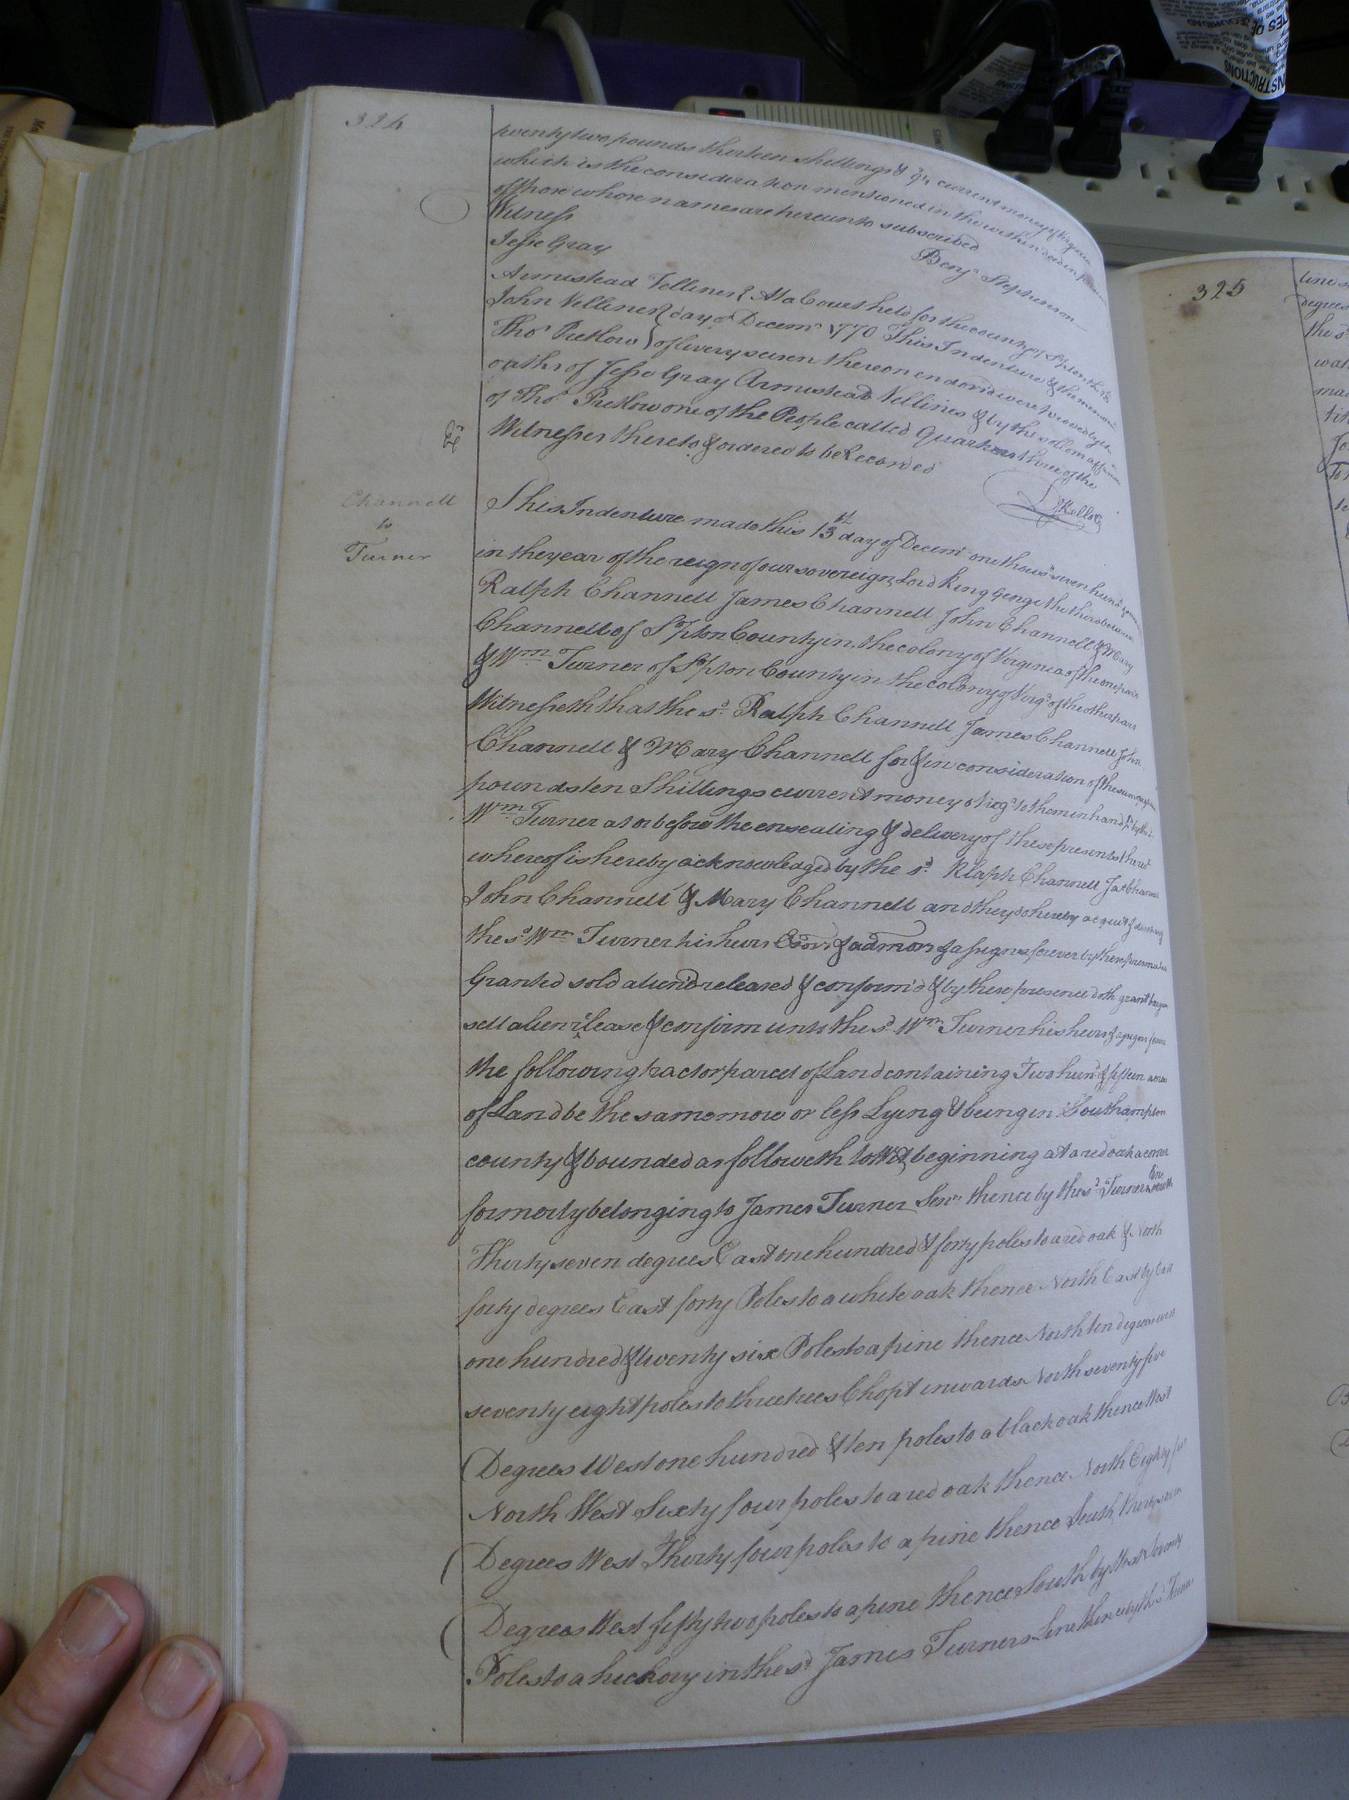 324
twenty two pounds thirteen shillings & current money of Virginia
which is the consideration mentioned in the within deed in
of those whose names are hereunto subscribed
Witness
Benj Stephenson
Jesse Gray
Armistead Vellines } At a Court held for the county of
John Vellines } day of Decemr 1770 This Indenture & the
Thos Pretlow } of livery seisen thereon endors'd were proved by the
oaths of Jesse Gray Armistead Vellines & by the sollem
of Thos Pretlow one of the People called Quarkers three of the
Witnesses thereto & ordered to be Recorded
Channell
to
Turner
This Indenture made this 13 day of Decemr one thousd seven hund
in the year of the reign of our sovereign Lord King George the third between
Ralph Channell James Channell John Channell & Mary
Channell of S'pton County in the colony of Virginia of the one part
& Wm Turner of S'pton County in the colony of Virga of the other part
Witnesseth that the sd Ralph Channell James Channell John
Channell & Mary Channell for & in consideration of the sum of
pounds ten Shillings current money of Virga to them in hand
Wm Turner at or before the ensealing & delivery of these presents the
whereof is hereby acknowledged by the sd Rlaph Channell Jas Channell
John Channell & Mary Channell and they do hereby acquit &
the sd Wm Turner his heirs Exors & admors & assigns forever by these presents
Granted sold aliend released & confirm'd & by these presence doth grant
sell alien release & confirm unto the sd Wm Turner his heirs & assigns
the following tract or parcel of Land containing Two hund & fifteen acres
of Land be the same mow or less Lying & being in Southampton
county & bounded as followeth to Wit beginning at a red oak a corner
formerly belonging to James Turner Senr thence by the sd Turners line
Thirty seven degrees East one hundred & forty poles to a red oak & North
forty degrees East forty Poles to a white oak thence North East by East
one hundred & twenty six Poles to a pine thence North ten degrees west
seventy eight poles to three trees Chopt inwards North seventy five
Degrees West one hundred & ten poles to a black oak thence West
North West Sixty four poles to a red oak thence North Eighty
Degrees West Thirty four poles to a pine thence South thirty seven
Degrees West fifty two poles to a pine thence South by West twenty
Poles to a hickory in the sd James Turners Line thence by the sd
325